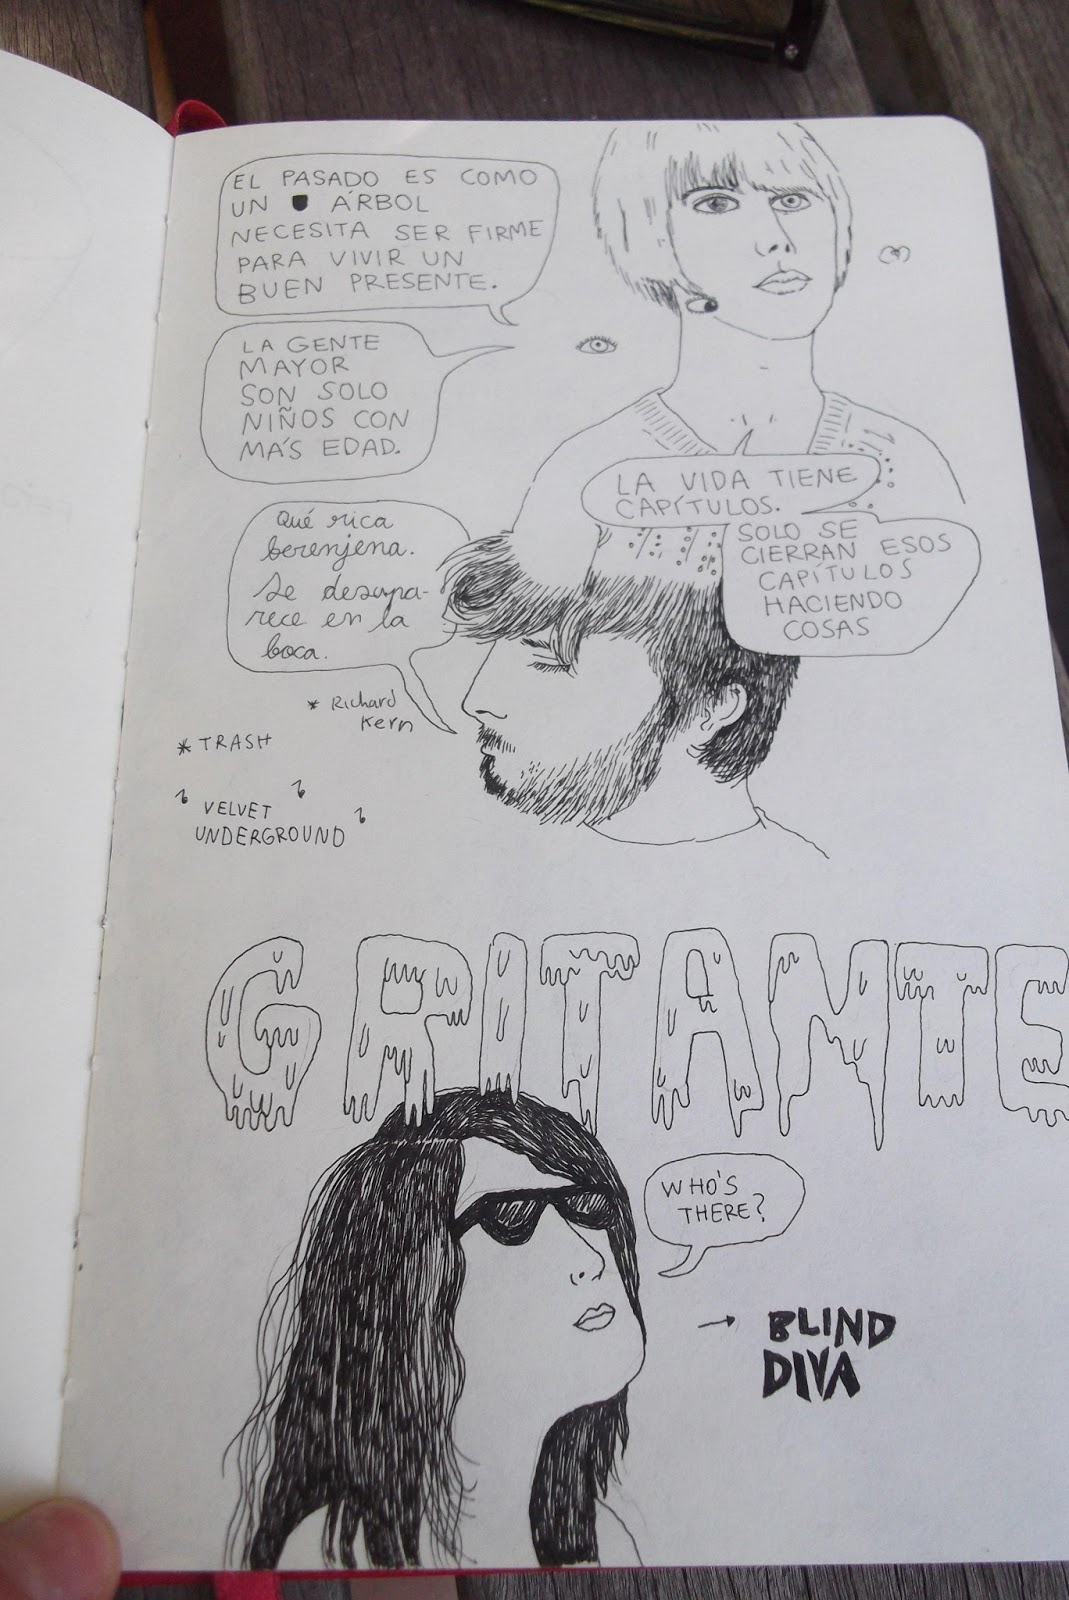 EL PASADO ES COMO
UN ÁRBOL
NECESITA SER FIRME
PARA VIVIR UN
BUEN PRESENTE.
LA GENTE
MAYOR
SON SOLO
NIÑOS CON
MÁS EDAD.
LA VIDA TIENE
CAPÍTULOS.
SOLO SE
CIERRAN ESOS
CAPÍTULOS
HACIENDO
COSAS
Qué rica
berenjena.
Se desapa-
rece en la
boca.
* Richard
Kern
* TRASH
VELVET
UNDERGROUND
GRITANTE
WHO'S
THERE?
→ BLIND
DIVA